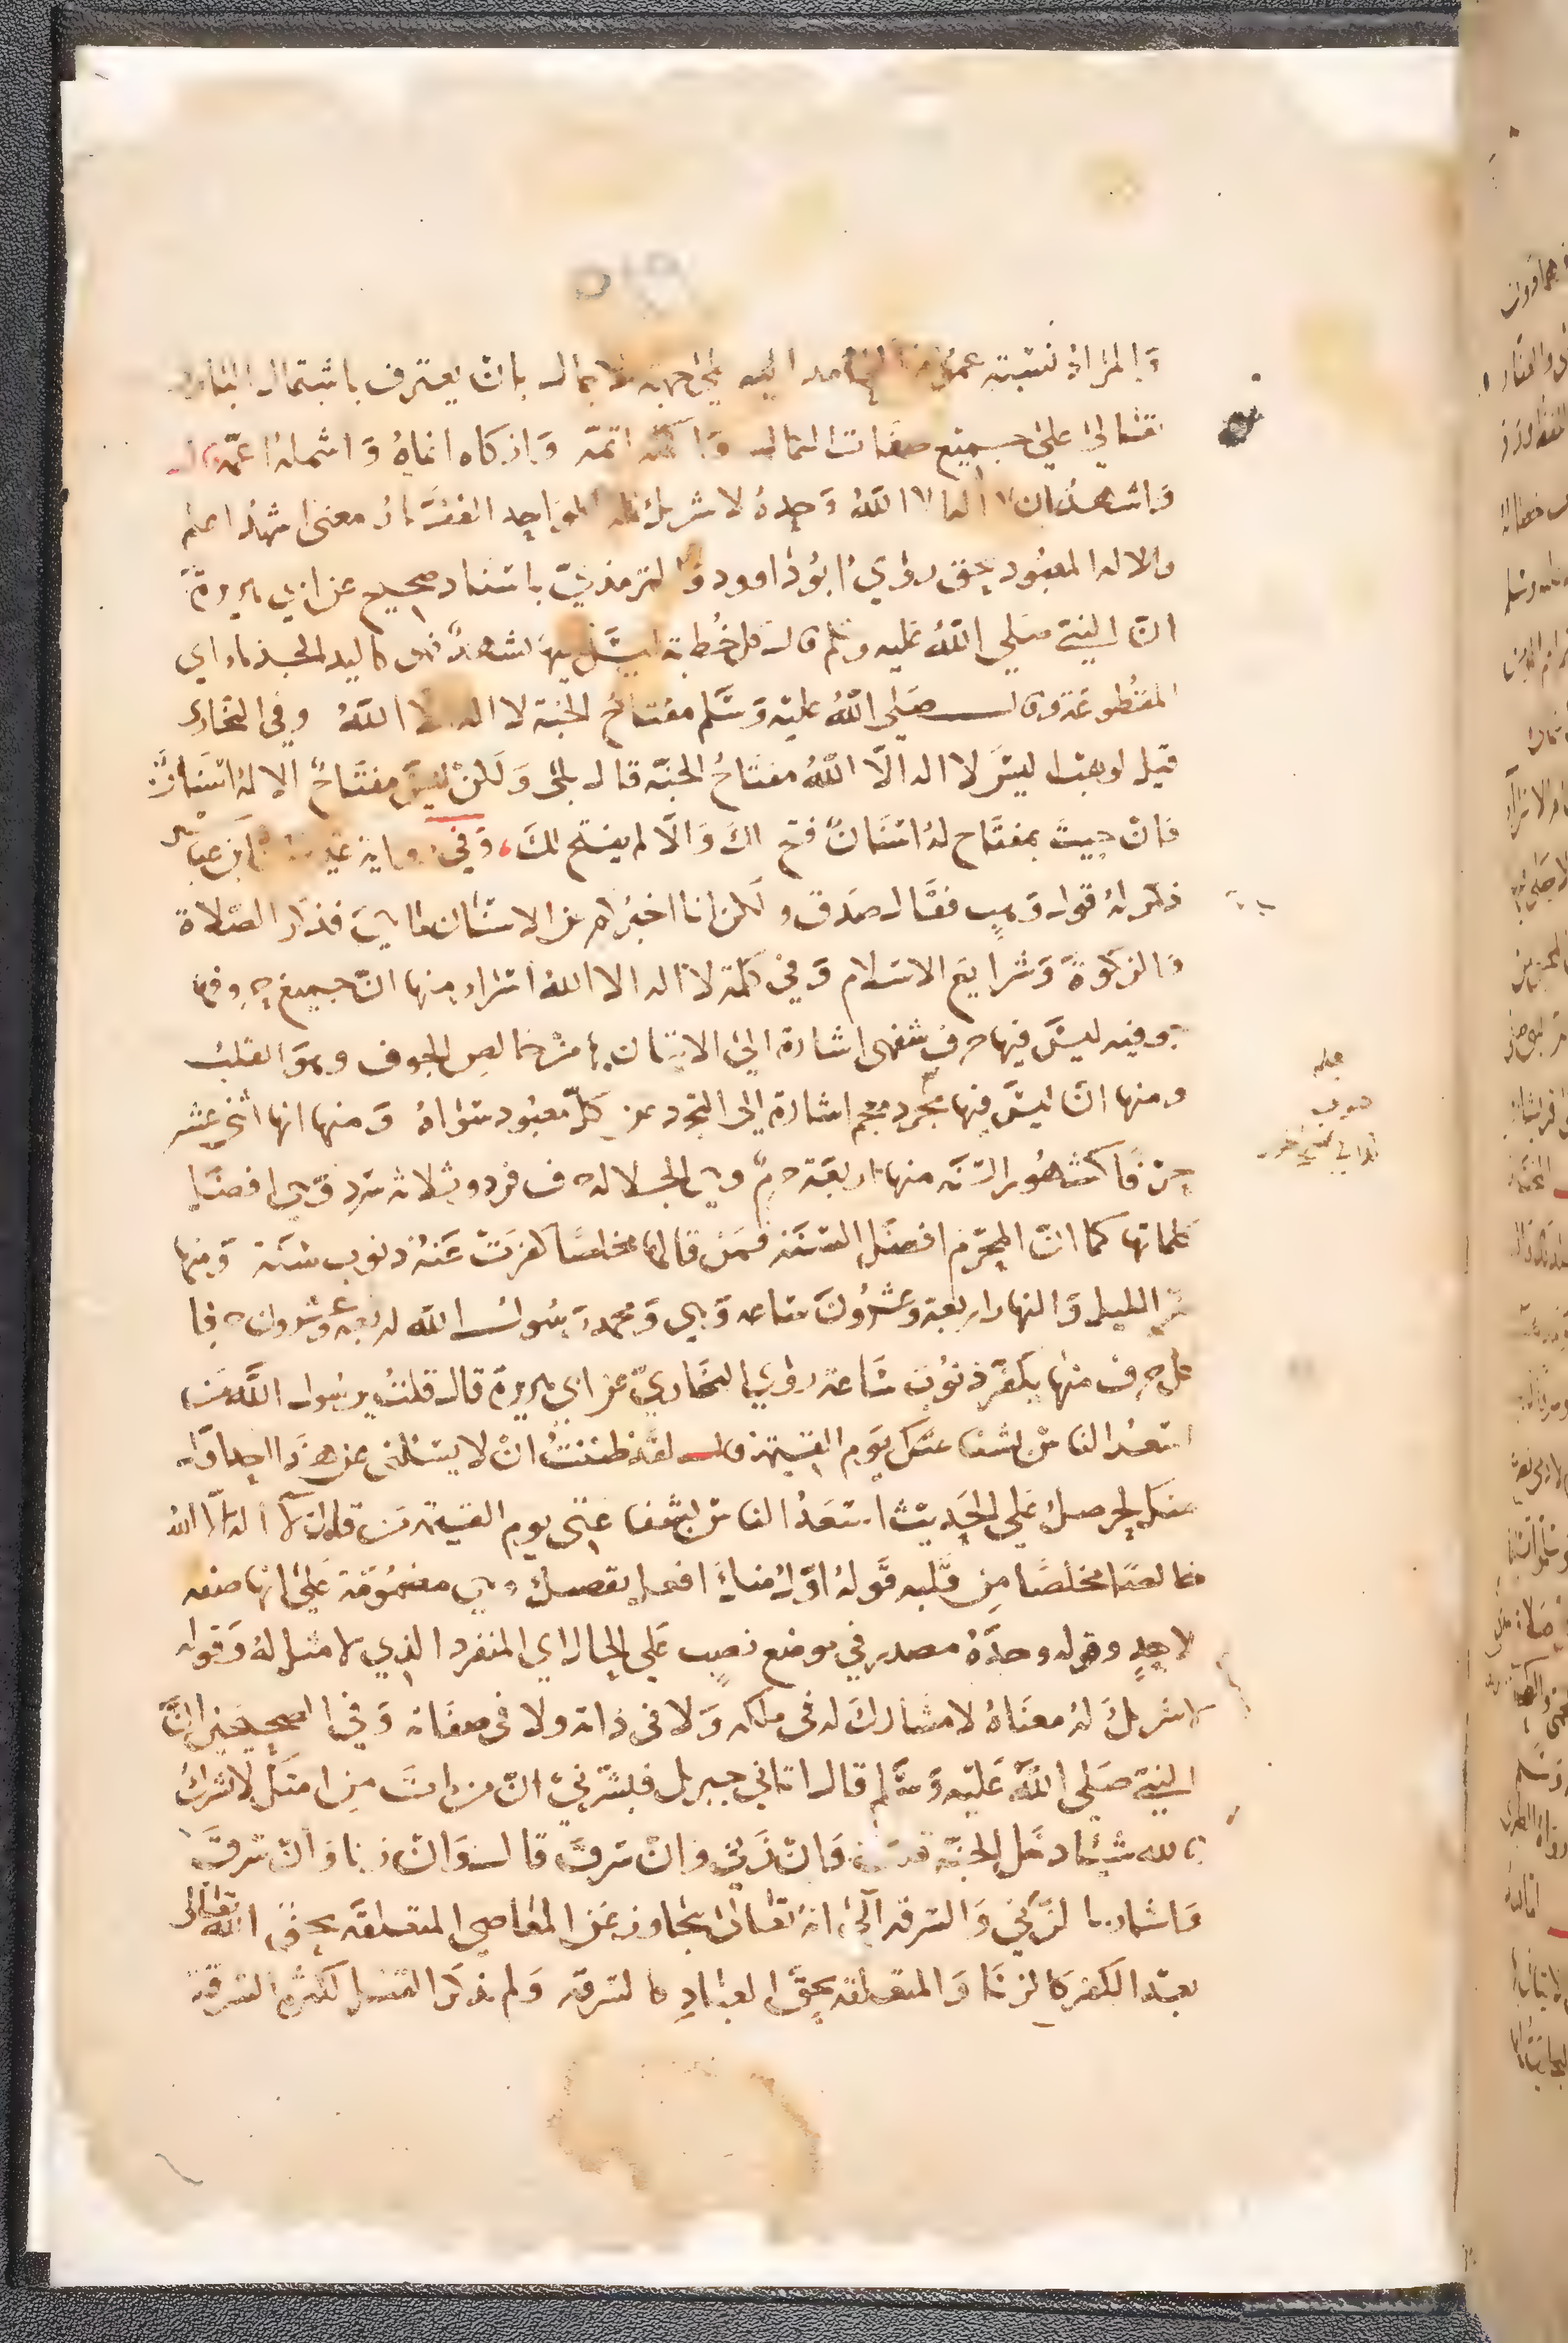 والمراد نسبة عموم المحامد اليه على جهة الاجمال بان يعترف باشتمال الباري
تعالى على جميع صفات الكمال واكمله اتمه وازكاه انماه واشمله اعمه
واشهد ان لا اله الا الله وحده لا شريك له الواحد الغفار معنى اشهد اعلم
والاله المعبود بحق روي ابو داوود والترمذي باسناد صحيح عن ابي هريرة
ان النبي صلى الله عليه وسلم قال كل خطبة ليس فيها تشهد فهى كاليد الجذماء اي
المقطوعة وقال صلى الله عليه وسلم مفتاح الجنة لا اله الا الله وفي البخاري
قيل لوهب اليس لا اله الا الله مفتاح الجنة قال بلى ولكن ليس مفتاح الا له اسنان
فان جيت بمفتاح له اسنان فتح لك والا لم يفتح لك وفي رواية ابن عباس
ذكر له قول وهب فقال صدق ولكن انا اخبركم عن الاسنان ما هي فذكر الصلاة
والزكوة وشرايع الاسلام وفي كلمة لا اله الا الله اسرار منها ان جميع حروفها
جوفيه ليس فيها حرف شفهى اشارة الى الاتيان بها من خالص الجوف وهو القلب
ومنها ان ليس فيها حرف معجم اشارة الى التجرد عن كل معبود سواه ومنها انها اثنى عشر
حرفا كشهور السنة منها اربعة حرم وهي الجلاله حرف فرد وثلاثة سرد وهي افضل
كلماتها كما ان المحرم افضل السنة فمن قالها مخلصا كفرت عنه ذنوب سنة ومنها
ان الليل والنهار اربعة وعشرون ساعه وهي ومحمد رسول الله اربعة وعشرون حرفا
كل حرف منها يكفر ذنوب ساعة روي البخاري عن ابي هريرة قال قلت يرسول الله من
اسعد الناس بشفاعتك يوم القيمة قال لقد ظننت ان لا يسئلنى عن هذا احد اول
منك لحرصك على الحديث اسعد الناس بشفاعتى يوم القيمة من قال لا اله الا الله
خالصا مخلصا من قلبه قوله اول منك افعل تفضيل وهي مضمومة على انها صفه
لاحد وقوله وحده مصدر في موضع نصب على الحال اي المنفرد الذي لا مثل له وقوله
لا شريك له معناه لا مشارك له فى ملكه ولا فى ذاته ولا فى صفاته وفي الصحيحين ان
النبي صلى الله عليه وسلم قال اتاني جبريل فبشرني ان من مات من امتك لا يشرك
بالله شيئا دخل الجنة قلت وان زنى وان سرق قال وان زنا وان سرق
واشار بالزني والسرقه الى انه تعالى يتجاوز عن المعاصي المتعلقة بحق الله تعالى
بعد الكفر كالزنا والمتعلقة بحق العباد كالسرقة ولم يذكر القتل لكثرة السرقة
صوب